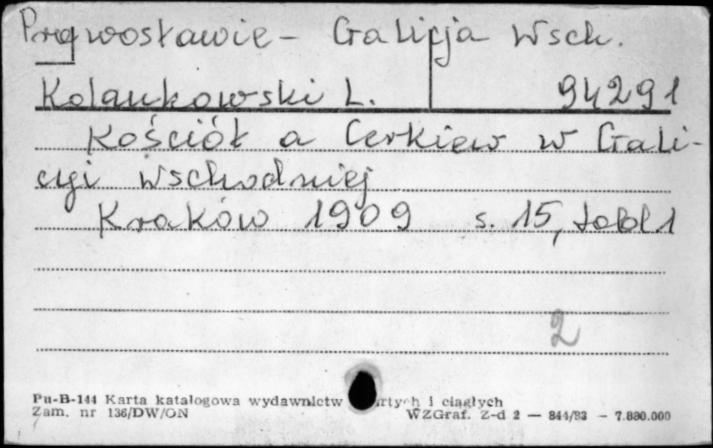 Prawosławie - Galicja Wsch.
Kolankowski L. 94291
Kościół a Cerkiew w Gali-
cyi Wschodniej
Kraków 1909 s. 15, tabl 1
2
Pu-B-144 Karta katalogowa wydawnictw i ciągłych
Zam. nr 136/DW/ON WZGraf. Z-d 2 — 844/83 — 7.880.000